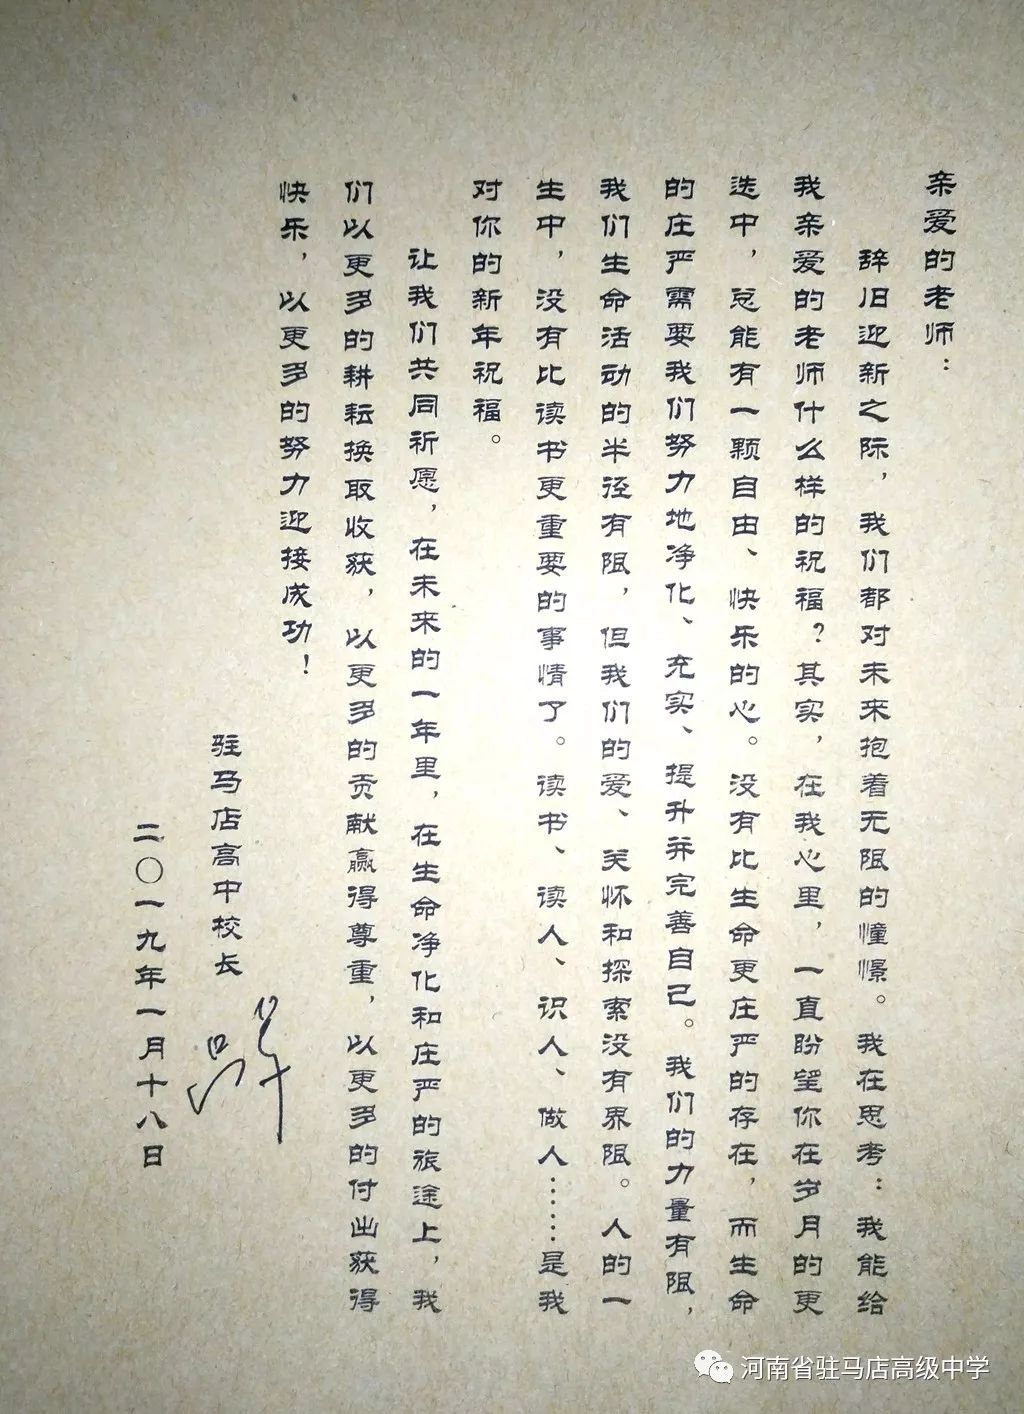 亲爱的老师：
辞旧迎新之际，我们都对未来抱着无限的憧憬。我在思考：我能给
我亲爱的老师什么样的祝福？其实，在我心里，一直盼望你在岁月的更
迭中，总能有一颗自由、快乐的心。没有比生命更庄严的存在，而生命
的庄严需要我们努力地净化、充实、提升并完善自己。我们的力量有限，
我们生命活动的半径有限，但我们的爱、关怀和探索没有界限。人的一
生中，没有比读书更重要的事情了。读书、读人、识人、做人……是我
对你的新年祝福。
让我们共同祈愿，在未来的一年里，在生命净化和庄严的旅途上，我
们以更多的耕耘换取收获，以更多的贡献赢得尊重，以更多的付出获得
快乐，以更多的努力迎接成功！
驻马店高中校长
二〇一九年一月十八日
河南省驻马店高级中学